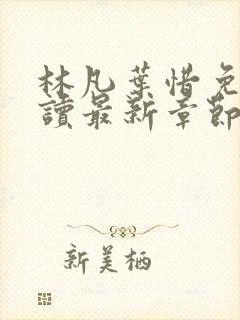 林凡葉惜免
讀最新章節
新美栖